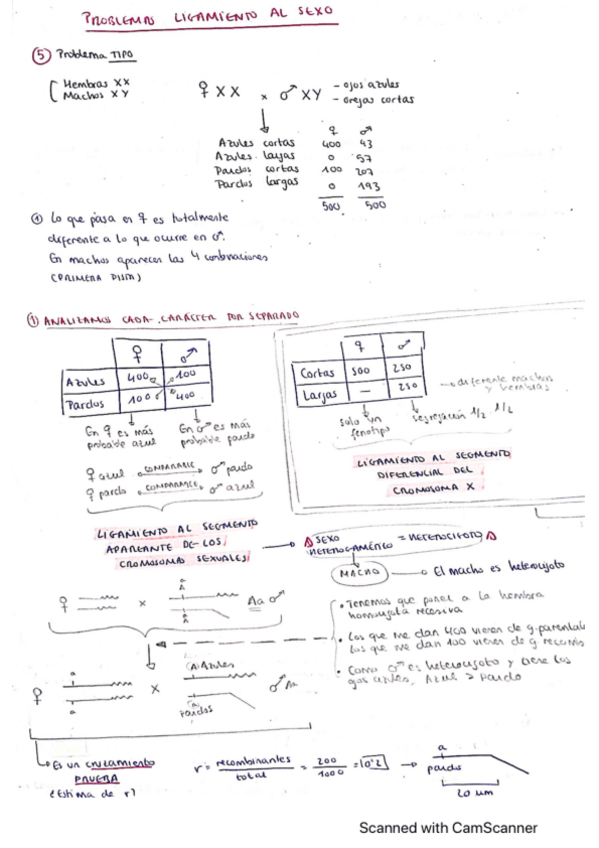 PROBLEMAS LIGAMIENTO AL SEXO
⑤ Problema TIPO
Hembras XX
Machos XY
♀ XX x ♂ XY
- ojos azules
- orejas cortas
♀ ♂
Azules cortas 400 43
Azules largas 0 57
Pardos cortas 100 207
Pardos largas 0 193
500 500
① Lo que pasa en ♀ es totalmente
diferente a lo que ocurre en ♂.
En machos aparecen las 4 combinaciones
(PRIMERA PISTA)
① ANALIZAMOS CADA CARÁCTER POR SEPARADO
♀ ♂
Azules 400 100
Pardos 100 400
En ♀ es más
probable azul
En ♂ es más
probable pardo
♀ azul COMPARABLE ♂ pardo
♀ pardo COMPARABLE ♂ azul
♀ ♂
Cortas 500 250
Largas — 250
diferente machos
y hembras
solo un
fenotipo
segregación 1/2 1/2
LIGAMIENTO AL SEGMENTO
DIFERENCIAL DEL
CROMOSOMA X
LIGAMIENTO AL SEGMENTO
APAREANTE DE LOS
CROMOSOMAS SEXUALES
SEXO
HETEROGAMÉTICO = HETEROCIGOTO
MACHO
El macho es heterocigoto
♀ x Aa ♂
a
A
• Tenemos que poner a la hembra
homocigota recesiva
• Los que me dan 400 vienen de g. parental
Los que me dan 100 vienen de g
• Como ♂ es heterocigoto y tiene los
ojos azules, Azul > Pardo
(A) Azules
♀ a a x a ♂ Aa
pardos
Es un cruzamiento
PRUEBA
(Estima de r)
r = recombinantes / total = 200 / 1000 = 0'2
a
pardos
20 um
Scanned with CamScanner